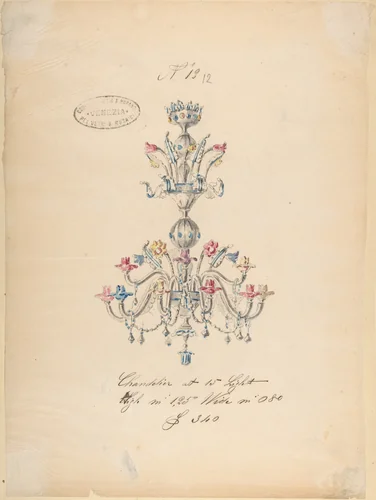 Nº 13 12
VENEZIA
Chandelier at 15 Light
High m 1,25 Wide m 0 80
£ 340